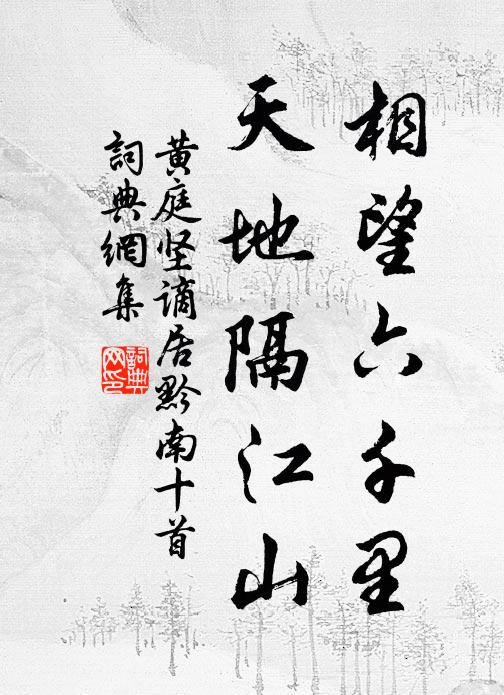 相望六千里
天地隔江山
黄庭坚谪居黔南十首
詞典網集
詞典
网印